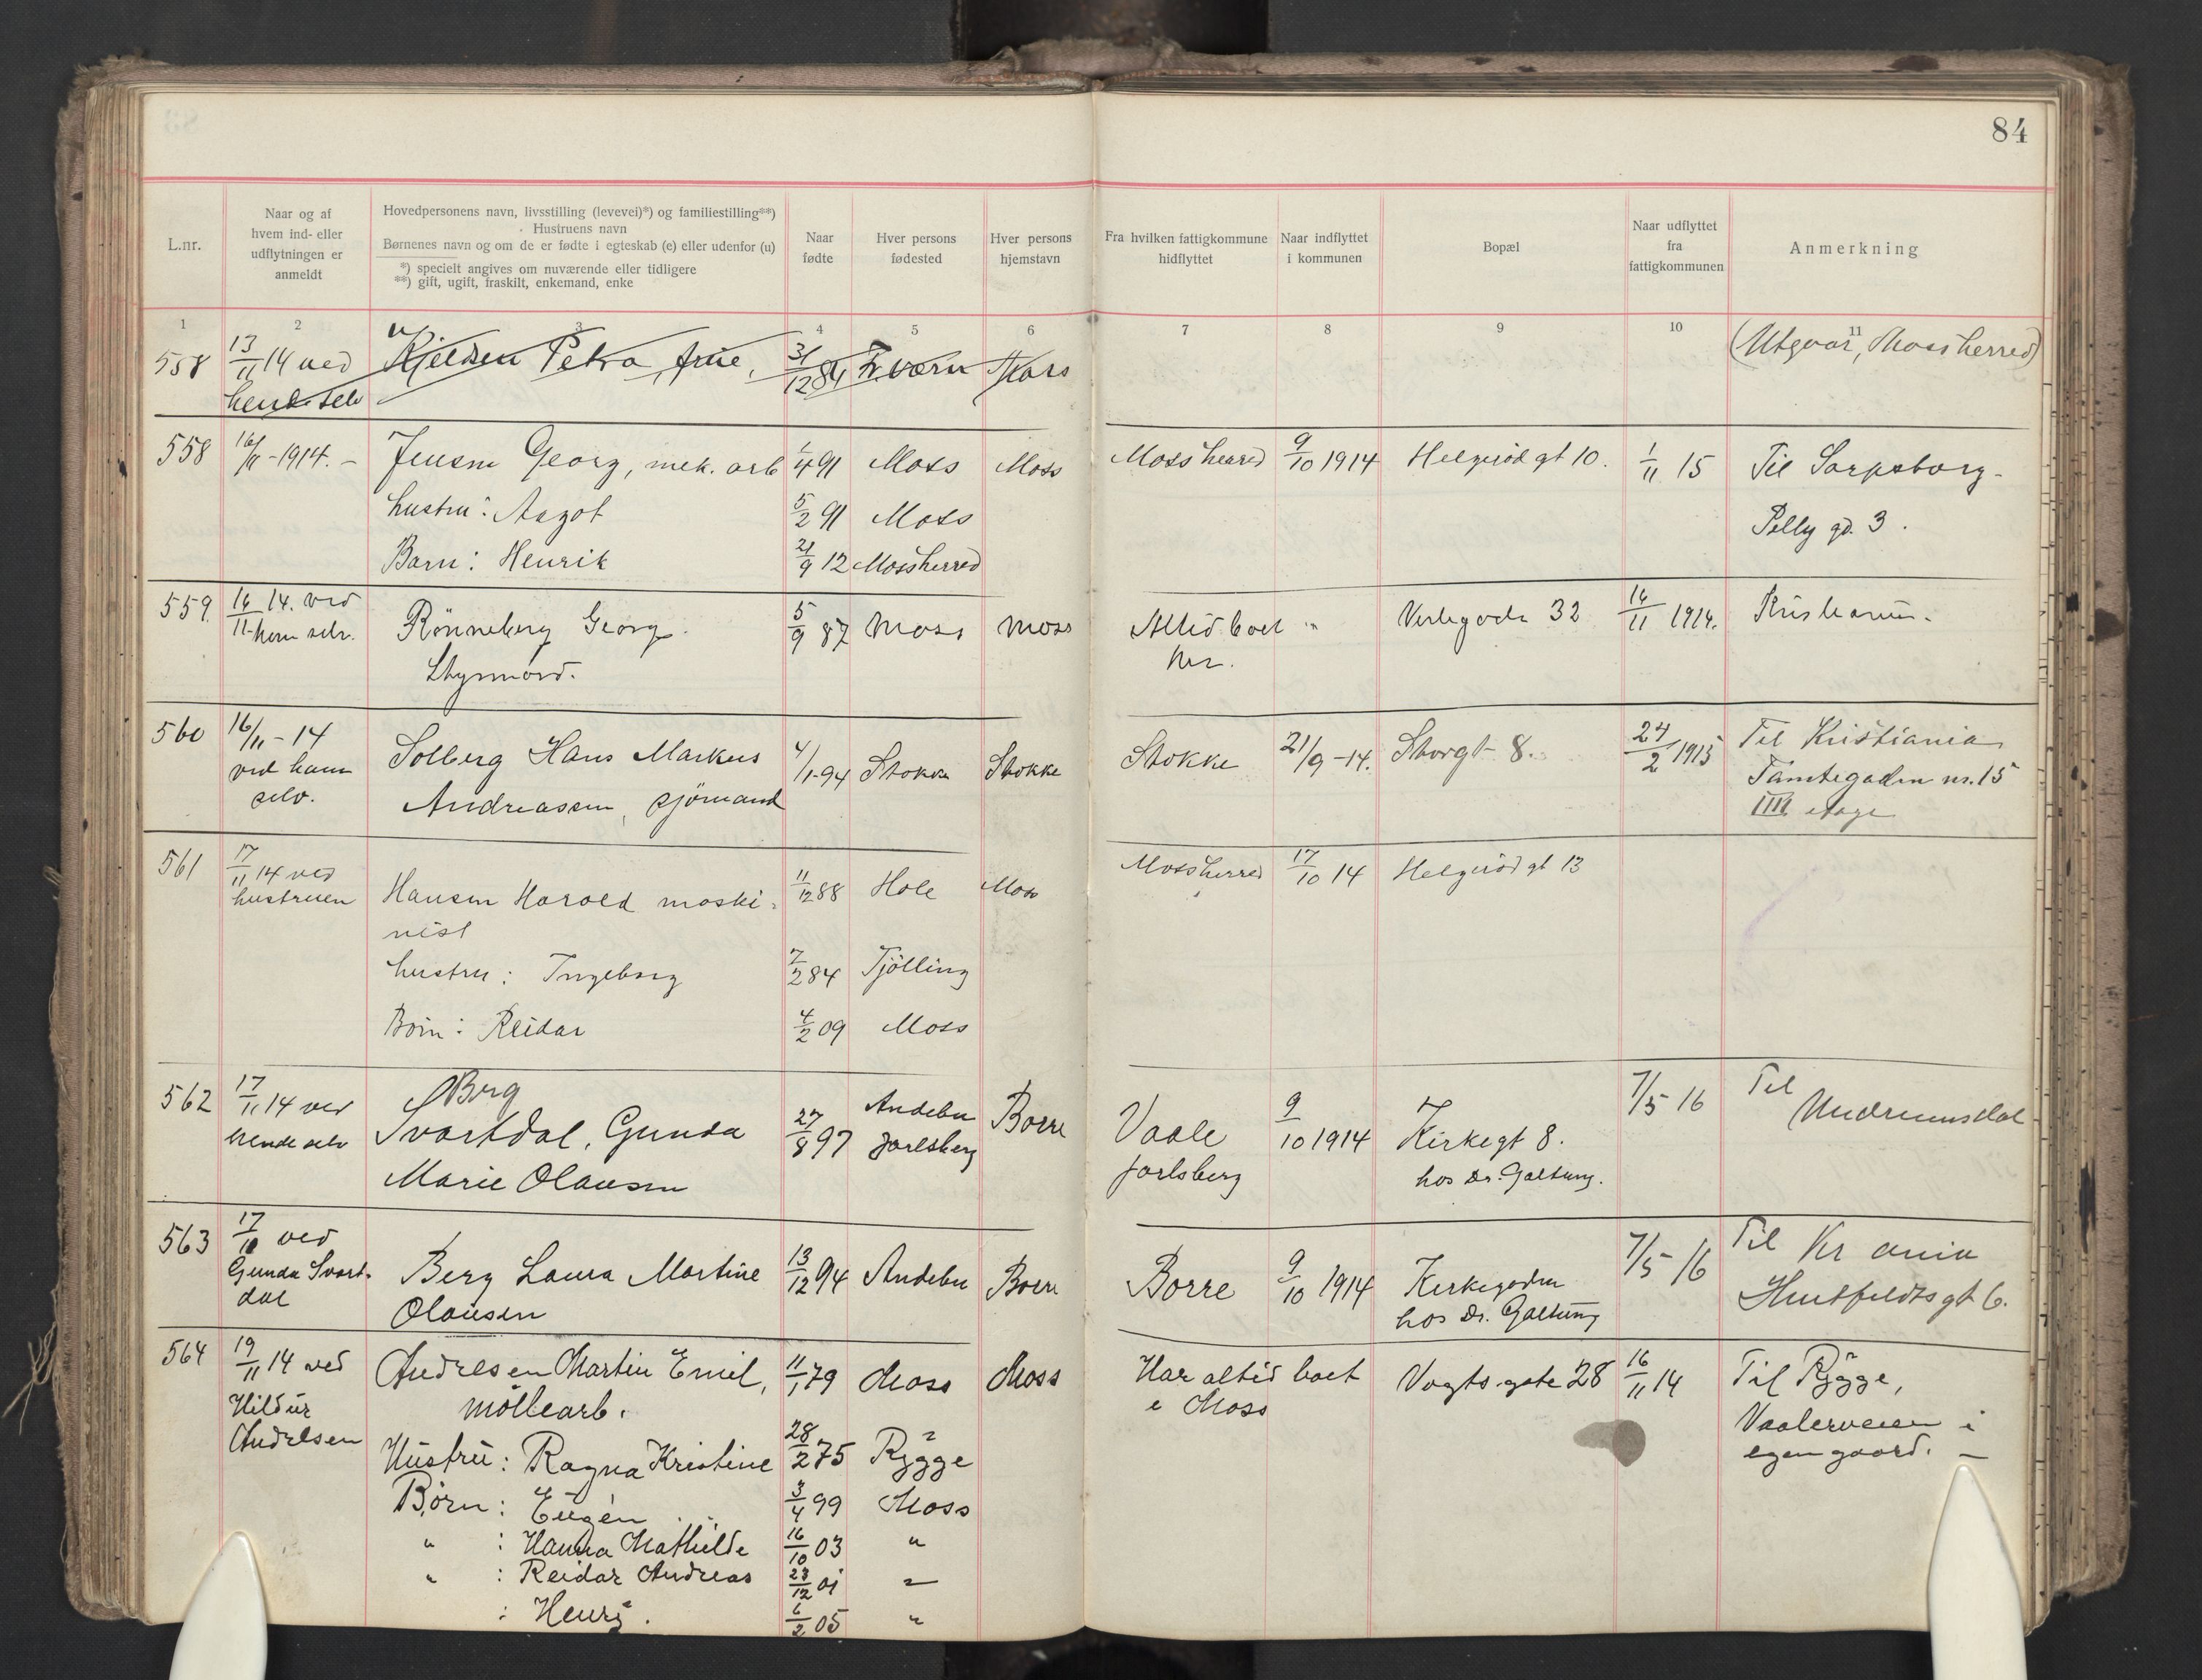 84
L.nr.
Naar og af
hvem ind- eller
udflytningen er
anmeldt
Hovedpersonens navn, livsstilling (levevei)*) og familiestilling**)
Hustruens navn
Børnenes navn og om de er fødte i egteskab (e) eller udenfor (u)
*) specielt angives om nuværende eller tidligere
**) gift, ugift, fraskilt, enkemand, enke
Naar
fødte
Hver persons
fødested
Hver persons
hjemstavn
Fra hvilken fattigkommune
hidflyttet
Naar indflyttet
i kommunen
Bopæl
Naar udflyttet
fra
fattigkommunen
Anmerkning
1 2 3 4 5 6 7 8 9 10 11
558 13/11 14 ved Petra, frue, 31/12 84 (Utgaar, Mossherred)
selv
558 16/11-1914. - Jensen Georg, mek. arb 1/4 91 Moss Moss Mossherred 9/10 1914 Helgerød gt 10. 1/11 15 Til Sarpsborg-
hustru: Aagot 5/2 91 Moss Pelly gd. 3.
Barn: Henrik 21/9 12 Mossherred
559. 16/11 14. ved Rönneberg Georg. 5/9 87 Moss Moss Altid boet " 32 16/11 1914. Kristiania.
ham selv. Styrmand. her.
560 16/11-14 Solberg Hans Markus 4/1-94 Stokke Stokke Stokke 21/9-14. Storgt 8. 24/2 1915 Til Kristiania
ved ham Andreassen, sjömand Tomtegaden nr. 15
selv. IIII etage
561 17/11 14 ved Hansen Harald maski- 11/12 88 Hole Moss Mossherred 17/10 14 Helgerød gt 13
hustruen nist
hustru: Ingeborg 7/2 84 Tjölling
Börn: Reidar 4/2 09 Moss
562 17/11 14 ved Berg
hende selv Svartdal, Gunda 27/8 97 Andebu Borre Vaale 9/10 1914 Kirkegt 8. 7/5 16 Til
Marie Olausen Jarlsberg Jarlsberg hos Dr. Galtung.
563 17/11 ved Berg Laura Martine 13/12 94 Andebu Borre Borre 9/10 1914 Kirkegaden 7/5 16 Til Kr ania
Gunda Svart- Olausen hos Dr. Galtung Huitfeldtsgt 6.
dal
564 19/11 14 ved Andresen Martin Emil, 11/1 79 Moss Moss Har altid boet Vogts gate 28 16/11 14 Til Rygge,
Hildur möllearb. i Moss Vaalerveien i
Andresen egen gaard. -
Hustru: Ragna Kristine 28/2 75 Rygge
Börn: Eugén 3/4 99 Moss
" : Hanna Mathilde 16/10 03 "
" : Reidar Andreas 23/12 01 "
: Henry. 6/2 05 "